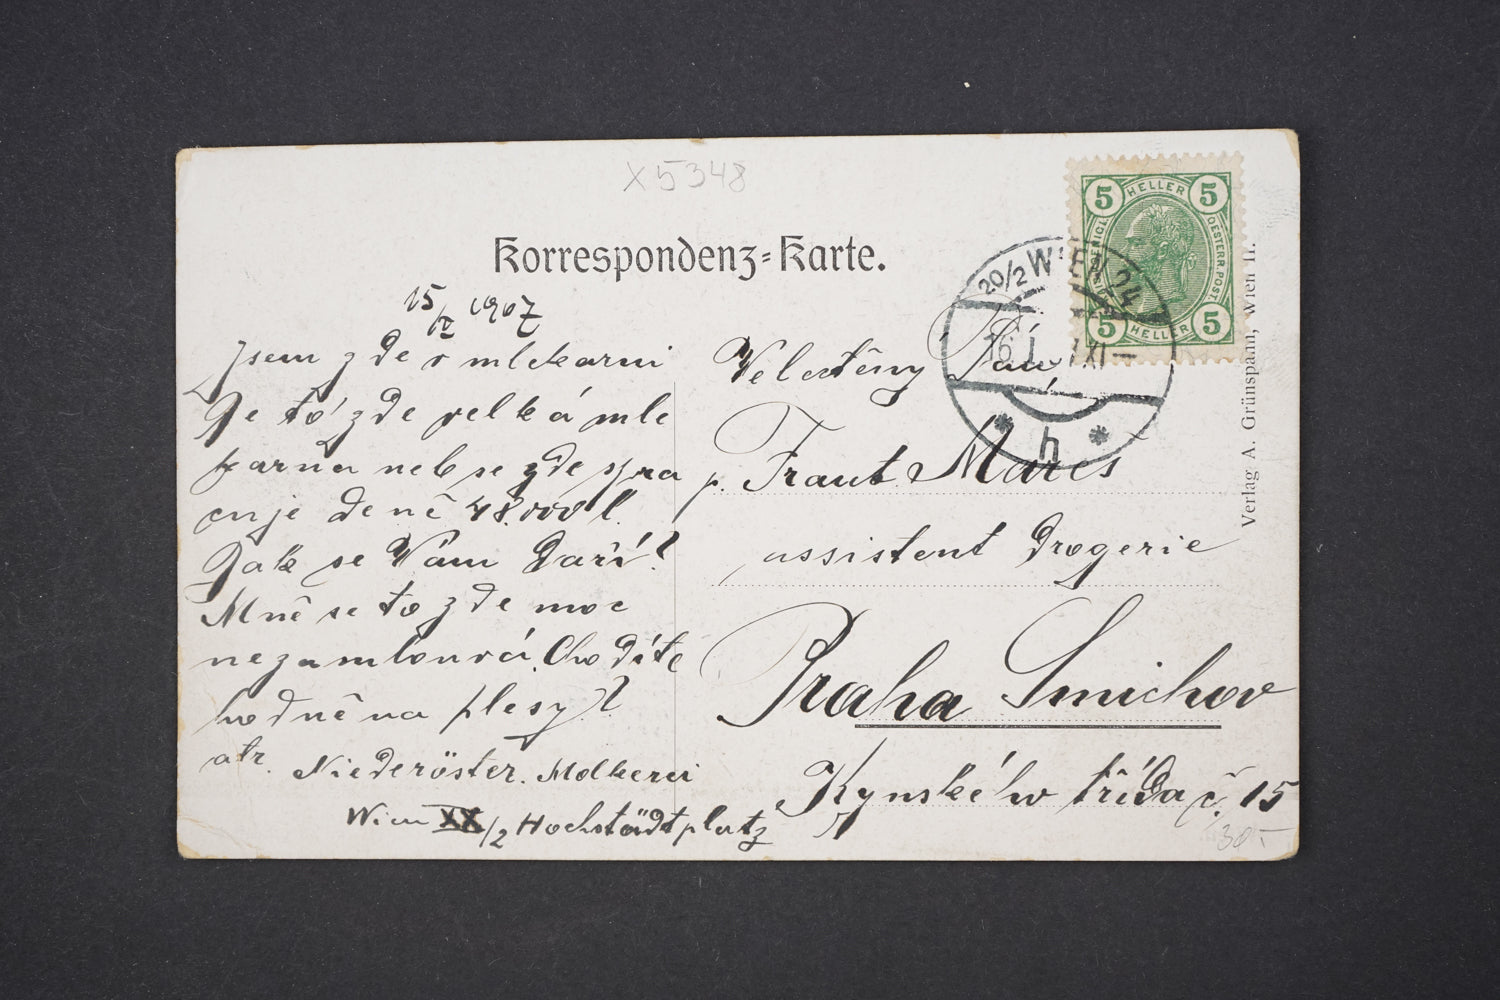 X5348
Korrespondenz-Karte.
15/II 1907
Jsem zde v mlekarni
Je to zde velká mle
karna neb se zde spra
cuje deně 48.000 l.
Jak se Vám daří?
Mně se to zde moc
nezamlouvá. Chodíte
hodně na plesy?
atr. Niederöster. Molkerei
Wien XX/2 Hochstädtplatz
Velectěný Pan
p. Frant Mareš
assistent drogerie
Praha Smichov
Kynského třída č. 15
30.-
5 HELLER 5
OESTERR.POST
5 HELLER 5
20/2 WIEN 24
16. XI—
* h *
Verlag A. Grünspann, Wien II.